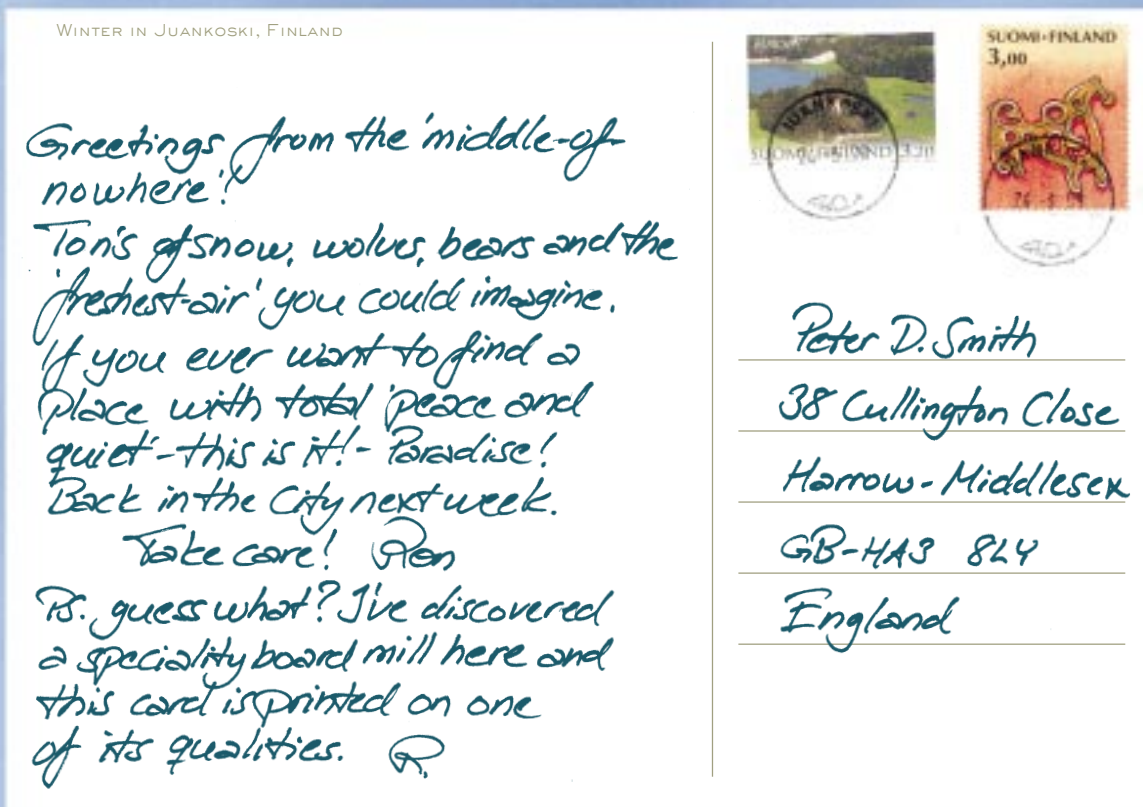 WINTER IN JUANKOSKI, FINLAND
Greetings from the 'middle-of-
nowhere'!
Ton's of snow, wolves, bears and the
'freshest-air' you could imagine.
If you ever want to find a
place with total 'peace and
quiet' - this is it! - Paradise!
Back in the City next week.
Take care! Ron
Ps. guess what? I've discovered
a speciality board mill here and
this card is printed on one
of its qualities. R.
JUANKOSKI
SUOMI FINLAND
SUOMI•FINLAND
3,00
Peter D. Smith
38 Cullington Close
Harrow - Middlesex
GB-HA3 8LY
England